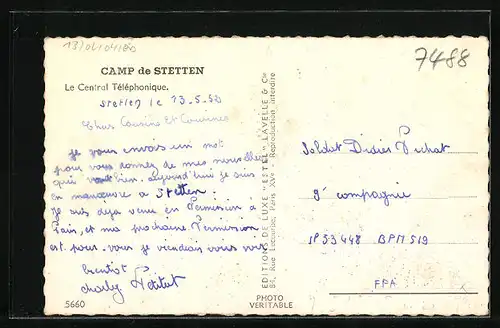 13/04/04180
7488
CAMP de STETTEN
Le Central Téléphonique.
Stetten le 13.5.53
Chers Cousins Et Cousines
je vous envois un mot
pour vous donnez de mes nouvelles
qui vont bien. aujourd'hui je suis
en manœuvre a Stetten.
Je suis deja venu en Permission à
Pain, et ma prochaine Permission
est pour vous je viendrais vous voir
bientot
charly
5660
PHOTO
VERITABLE
EDITIONS DE LUXE "ESTEL" LAVELLE & Cie
85, Rue Lecourbe, Paris XVe - Reproduction interdite
Soldat Didier Pichat
9° compagnie
SP 53448 BPM 519
FFA